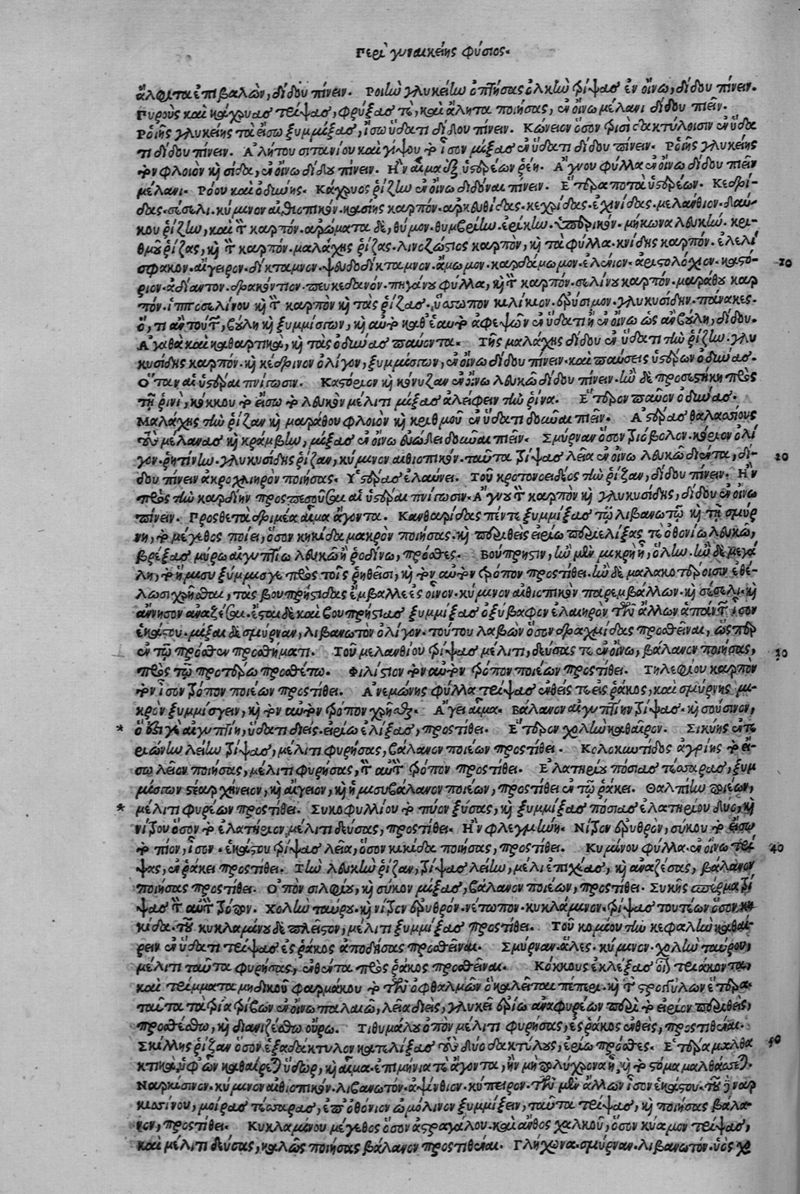 Περὶ γυναικείης φύσιος.
ἄλφιτα ἐπιβαλὼν, δίδου πίνειν. Ῥοιὴν γλυκείην ὀπτήσας τρίψας ἐν οἴνῳ, δίδου πίνειν.
Πυροὺς καὶ κάχρυας τρίψας, φρύξας τε, καὶ ἄλητα ποιήσας, ἐν οἴνῳ μέλανι δίδου πιεῖν.
Ῥοιῆς γλυκείης τὰ εἴσω ξυμμίξας, ἴσῳ ὕδατι δίδου πίνειν. Κώνειον ὅσον τρισὶ δακτύλοισιν ἐν ὕδα
τι δίδου πίνειν. Ἀλήτου σιτανίου καὶ γύψου τὸ ἴσον μίξας ἐν ὕδατι δίδου πίνειν. Ῥοιῆς γλυκείης
τὸν φλοιὸν καὶ σίδια, ἐν οἴνῳ δίδου πίνειν. Ἢν αἷμα ἐξ ὑστερέων ῥέῃ. Ἄγνου φύλλα ἐν οἴνῳ δίδου πιεῖν
μέλανι. Ῥόου καὶ ὀδύνης. Κάχρυος ῥίζην ἐν οἴνῳ διδόναι πίνειν. Ἕτερα ποτὰ ὑστερέων. Κεδρί-
δας. σέσελι. κύμινον αἰθιοπικόν. καρπόν. ἀρκευθίδας. κεγχρίδας. ἐχινίδας. μελάνθιον. δαύ-
κου ῥίζην, καὶ τὸν καρπόν. ἀρώματα δὲ, θύμον. θύμβρην. ἐρίκην. ὑπερικόν. μήκωνα λευκήν. κρί-
θμου ῥίζας, καὶ τὸν καρπόν. μαλάχης ῥίζας. λινοζώστιος καρπόν, καὶ τὰ φύλλα. κνίδης καρπόν. ἐλελί
σφακον. αἴγειρον. δίκταμνον. ψευδοδίκταμνον. ἄμωμον. καρδάμωμον. ἑλένιον. ἀριστολόχιον. καστό-
ριον. ἀδίαντον. δρακόντιον. πευκέδανον. πηγάνου φύλλα, καὶ τὸν καρπόν. σελίνου καρπόν. μαράθου καρ
πόν. ἱπποσελίνου καὶ τὸν καρπὸν καὶ τὰς ῥίζας. ὕσσωπον κιλίκιον. ἐρύσιμον. γλυκυσίδην. πάνακες.
ὅ, τι ἂν τούτων βούλῃ καὶ ξυμμίσγων, καὶ αὐτὸ καθ᾽ ἑαυτὸ ἀφεψῶν ἐν ὕδατι ἢ ἐν οἴνῳ ὡς ἂν βούλῃ, δίδου.
Ἀγαθὰ καὶ καθαρτικὰ, καὶ τὰς ὀδύνας παύοντα. Τῆς μαλάχης δίδου ἐν ὕδατι τὴν ῥίζην. γλυ
κυσίδης καρπόν. καὶ κέδρινον ὀλίγον, ξυμμίσγων, ἐν οἴνῳ δίδου πίνειν. καὶ παύσεις ὑστερῶν ὀδύνας.
Ὅταν αἱ ὑστέραι πνίγωσιν. Καστόριον καὶ κόνυζαν ἐν οἴνῳ λευκῷ δίδου πίνειν. ἢν δὲ προσεστήκῃ πρὸς
τῇ ῥινὶ, κόκκου τὸ εἴσω τὸ λευκὸν μέλιτι μίξας ἀλείφειν τὴν ῥῖνα. Ἕτερον παῦον ὀδύνας.
Μαλάχης τὴν ῥίζαν καὶ μαράθου φλοιὸν καὶ κρίθμου ἐν ὕδατι διδόναι πιεῖν. Ἀστέρας θαλασσίους
τοὺς μέλανας καὶ κράμβην, μίξας ἐν οἴνῳ εὐώδει διδόναι πιεῖν. Σμύρναν ὅσον διόβολον. κόριον ὀλί
γον. ῥητίνην. γλυκυσίδης ῥίζαν, κύμινον αἰθιοπικόν. ταῦτα τρίψας λεῖα ἐν οἴνῳ λευκῷ διέντα, δί-
δου πίνειν ἀκροχλίηρον ποιήσας. Ὑστέρας ἐλαύνει. Τοῦ κροτονοειδέος τὴν ῥίζαν, δίδου πίνειν. Ἢν
πρὸς τὴν καρδίην προσπεσοῦσαι αἱ ὑστέραι πνίγωσιν. Ἄγνου τὸν καρπὸν καὶ γλυκυσίδης, δίδου ἐν οἴνῳ
πίνειν. Προσθετὰ δριμέα αἷμα ἄγοντα. Κανθαρίδας πέντε ξυμμίξας τῷ λιβανωτῷ καὶ τῇ σμύρ
νῃ, τὸ μέγεθος ποίει, ὅσον κηκίδα μακρὸν ποιήσας. καὶ περιθεὶς εἰρίῳ περιελίξας τε ὀθονίῳ λευκῷ,
βρέξας μύρῳ αἰγυπτίῳ λευκῷ ἢ ῥοδίνῳ, πρόσθες. Βούπρηστιν, ἢν μὲν μικρὴ ᾖ, ὅλην. ἢν δὲ μεγά
λη, τὸ ἥμισυ ξύμμισγε πρὸς τοῖς ῥηθεῖσι, καὶ τὸν αὐτὸν τρόπον προστίθει. ἢν δὲ μαλακωτέροισιν ἐθέ-
λῃς χρῆσθαι, τὰς βουπρήστιδας ἐμβάλλε ἐς οἶνον. κύμινον αἰθιοπικὸν παρεμβάλλων. καὶ σέσελι. καὶ
ἄννησον ἀναζέσαι. ἔσται δὲ καὶ βουπρήστιας ξυμμίξας ὀξύβαφον ἐλατηρίου τῶν ἄλλων ἁπάντων ἴσον
ἑκάστου. μίξαι δὲ σμύρναν, λιβανωτὸν ὀλίγον. τούτου λαβὼν ὅσον δραχμίδας προσθεῖναι, ὥσπερ
ἐν τῷ πρόσθεν προσθήματι. Τοῦ μελανθίου τρίψας μέλιτι, δεύσας τε ἐν οἴνῳ, βάλανον ποιήσας,
πρὸς τῷ προτέρῳ προσθέτῳ. Φιλίστιον τὸν αὐτὸν τρόπον ποιέων προστίθει. Τηλεφίου καρπὸν
τὸν ἴσον τρόπον ποιέων προστίθει. Ἀνεμώνης φύλλα τρίψας ἐνθείς τε εἰς ῥάκος, καὶ σμύρνης μι
κρὸν ξυμμίσγειν, καὶ τὸν αὐτὸν τρόπον χρῆσθαι. Ἄγει αἷμα. Βάλανον αἰγυπτίην τρίψας. καὶ σούσινον,
αἰγυπτίη, ὕδατι διείς. εἰρίῳ ἑλίξας, προστίθει. Ἕτερον χολὴν καθαῖρον. Σικύης ἐντε
ριώνην λείην τρίψας, μέλιτι φυρήσας, βάλανον ποιέων προστίθει. Κολοκυντίδος ἀγρίης τὸ εἴ-
σω λεῖον ποιήσας, μέλιτι φυρήσας, τὸν αὐτὸν τρόπον προστίθει. Ἐλατηρίου πόσιας τέσσαρας, ξυμ
μίσγων στέαρ χήνειον, καὶ αἴγειον, καὶ ἥμισυ βάλανον ποιέων, προστίθει ἐν τῷ ῥάκει. ποιέων,
μέλιτι φυρέων προστίθει. Συκοφυλλίου τὸ πῖον ξύσας, καὶ ξυμμίξας πόσιας ἐλατηρίου δύο, καὶ
νίτρου ὅσον τὸ ἐλατήριον, μέλιτι δεύσας, προστίθει. Ἢν φλεγμήνῃ. Νίτρον ἐρυθρὸν, σύκου τὸ εἴσω
τὸ πῖον, ἴσον ἑκάστου τρίψας λεῖα, ὅσον κικίδα ποιήσας, προστίθει. Κυμίνου φύλλα ἐν οἴνῳ τρί-
ψας, ἐν ῥάκει προστίθει. Τὴν λευκὴν ῥίζαν, τρίψας λείην, μέλι ἐπιχέας, καὶ ἀναζέσας, βάλανον
ποιήσας προστίθει. Ὀπὸν σιλφίου, καὶ σύκον μίξας, βάλανον ποιέων, προστίθει. Σικύης σπέρμα τρί
ψας τὸν αὐτὸν τρόπον. Χολὴν ταύρου. καὶ νίτρον ἐρυθρόν. νέτωπον. κυκλάμινον. τρίψας τουτέων ὅσον κη
κίδα. τοῦ κυκλαμίνου δὲ πλεῖστον, μέλιτι ξυμμίξας προστίθει. Τοῦ κομάρου τὴν κεφαλὴν καθαί-
ρειν ἐν ὕδατι τρίψας ἐς ῥάκος ἀποδήσας προσθεῖναι. Σμύρναν. ἅλες. κύμινον. χολὴν ταύρου,
μέλιτι ταῦτα φυρήσας, ἐνθέντα πρὸς ῥάκος προσθεῖναι. Κόκκους ἐκλέξας ὅσον τριάκοντα,
καὶ τρίμματα μηδικοῦ φαρμάκου τῶν ὀφθαλμῶν ὃ καλεῖται πέπερι. καὶ τῶν στρογγύλων ἕτερα.
ταῦτα τὰ τρία τρίβων ἐν οἴνῳ παλαιῷ, λεῖα διεὶς, γλυκεῖ ἀναφυρέων περὶ τὸ εἴριον περιθεὶς,
προσθέσθω, καὶ διανιζέσθω οὔρῳ. Τιθυμάλου ὀπὸν μέλιτι φυρήσας, ἐς ῥάκος ἐνθεὶς, προστίθεσθαι.
Σκίλλης ῥίζαν ὅσον ἑξαδάκτυλον κατελίξας τοὺς δύο δακτύλους, εἰρίῳ πρόσθες. Ἕτερα μαλθα
κτικὰ, ὑφ᾽ ὧν καθαίρεται ὕδωρ, καὶ αἷμα. ἐπιμήνιά τε ἄγοντα, ἢν μὴ πολυχρόνια ᾖ, καὶ τὸ στόμα μαλθάσσεται.
Ναρκίσσινον. κύμινον αἰθιοπικόν. λιβανωτόν. ἀψίνθιον. κύπειρον. τῶν μὲν ἄλλων ἴσον ἑκάστου. τοῦ δὲ ναρ
κισσίνου, μοίρας τέσσαρας, ἐπ᾽ ὀθόνιον ὠμόλινον ξυμμίξειν, ταῦτα τρίψας, καὶ ποιήσας βάλα-
νον, προστίθει. Κυκλαμίνου μέγεθος ὅσον ἀστραγάλου. καὶ ἄνθος χαλκοῦ, ὅσον κύαμον τρίψας,
καὶ μέλιτι δεύσας, καλῶς ποιήσας βάλανον προστίθεσθαι. Γλήχωνα. σμύρναν. λιβανωτόν. ὑὸς χο